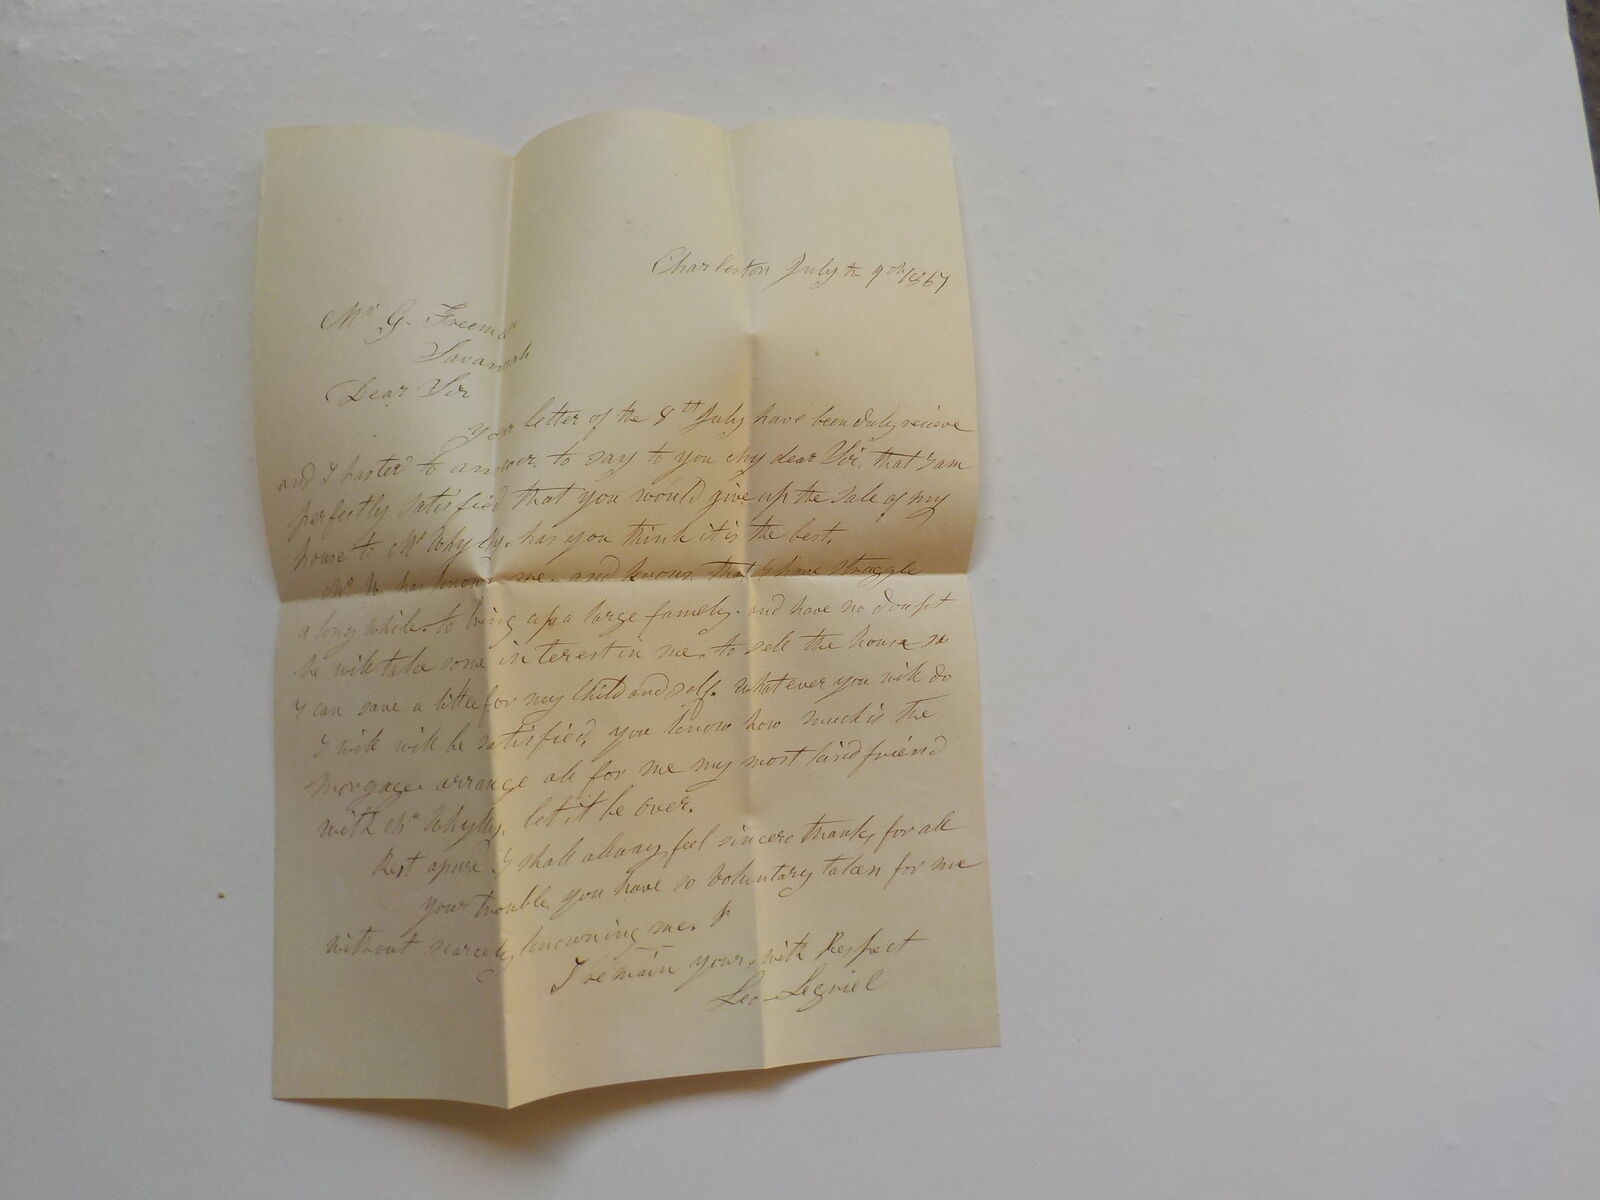 Charleston July th 9th/1867
Mr G. Freeman
Savannah
Dear Sir
Your letter of the 8th July have been duly recieve
and I hasted to answer. to say to you my dear Sir. that I am
perfectly satisfied that you would give up the sale of my
house to Mr Whylly. has you think it is the best.
Mr W. has known me. and knows that I have struggle
a long while. to bring up a large family. and have no doupt
he will take some interest in me. to sell the house so
I can save a little for my Child and self. whatever you will do
I will will be satisfied. you know how much is the
morgage. arrange all for me my most kind friend
with Mr Whylly. let it be over.
Rest apure I shall allways feel sincere thanks for all
your trouble you have so voluntary taken for me
without scarcely knowning me.
I remain yours with Respect
Leo Legriel